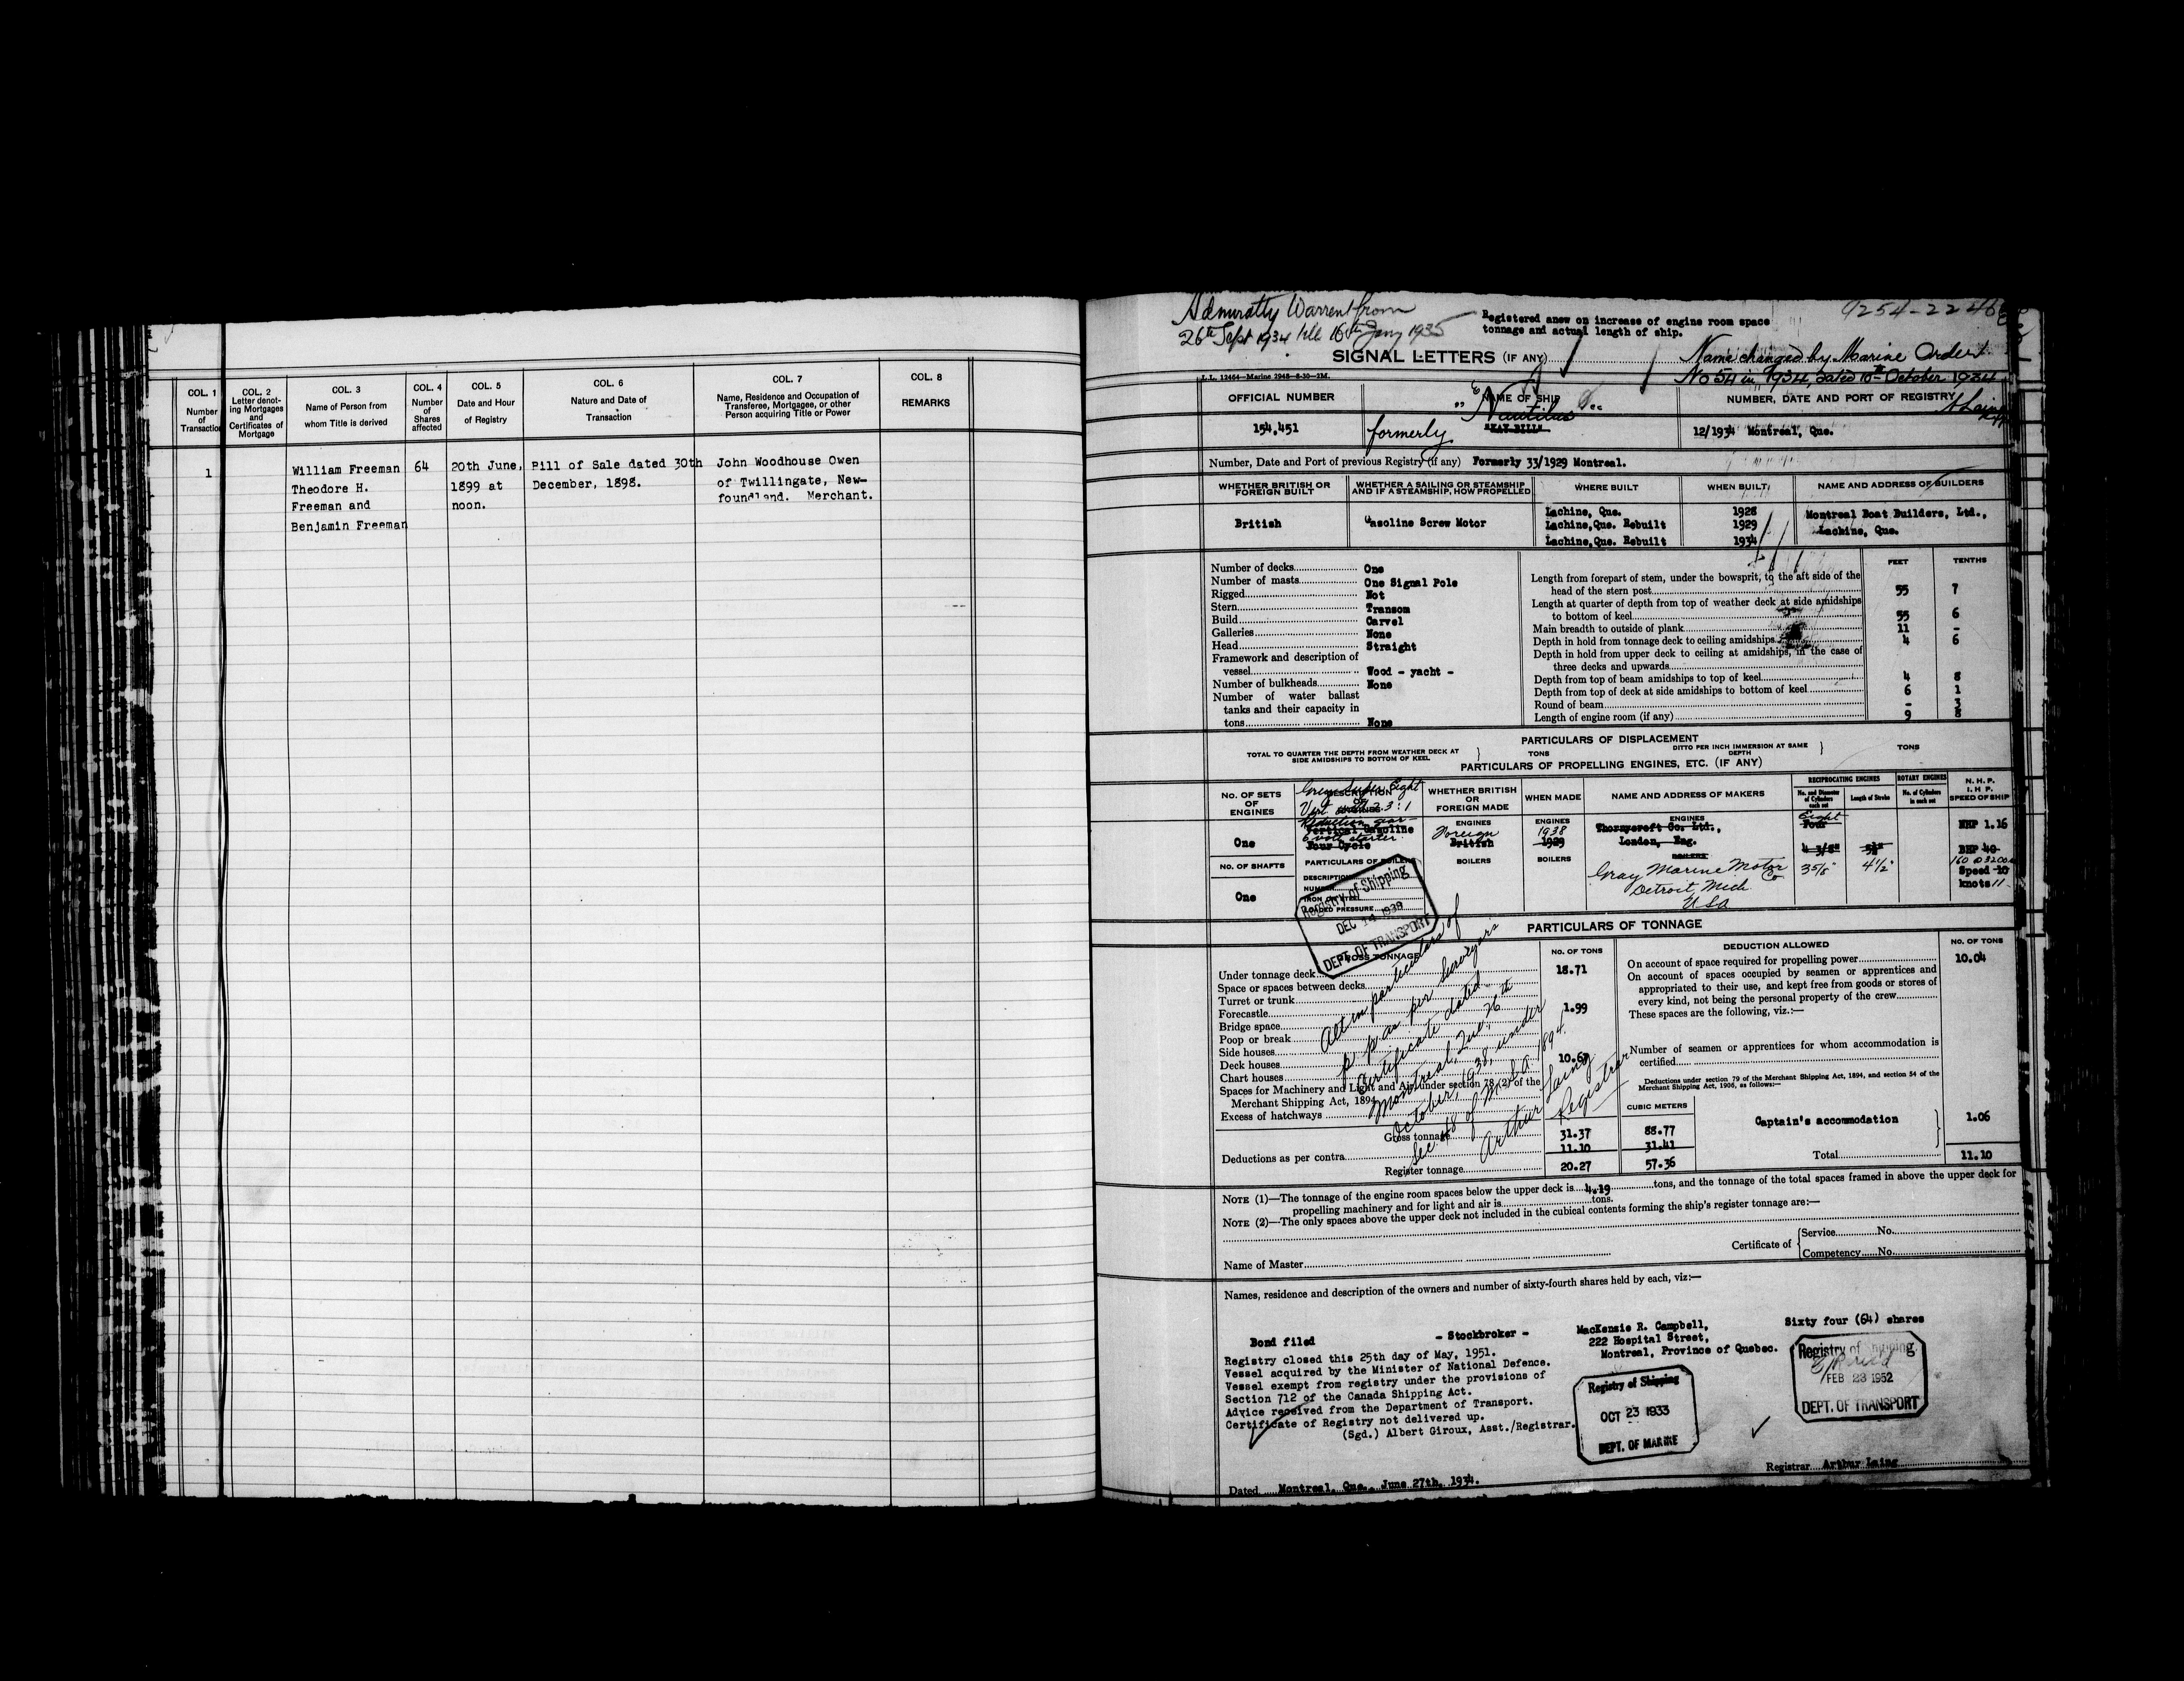 COL. 1
Number
of
Transaction
COL. 2
Letter denot-
ing Mortgages
and
Certificates of
Mortgage
COL. 3
Name of Person from
whom Title is derived
COL. 4
Number
of
Shares
affected
COL. 5
Date and Hour
of Registry
COL. 6
Nature and Date of
Transaction
COL. 7
Name, Residence and Occupation of
Transferee, Mortgagee, or other
Person acquiring Title or Power
COL. 8
REMARKS
1
William Freeman
Theodore H.
Freeman and
Benjamin Freeman
64
20th June,
1899 at
noon.
Bill of Sale dated 30th
December, 1898.
John Woodhouse Owen
of Twillingate, New-
foundland. Merchant.
Admiralty Warrent from
26th Sept 1934 till 16th Jany 1935
Registered anew on increase of engine room space
tonnage and actual length of ship.
9254-2246
SIGNAL LETTERS (IF ANY)
Name changed by Marine Order
No 54 in 1934, dated 10th October 1934
L.L. 12464—Marine 2948—8-30—2M.
OFFICIAL NUMBER
NAME OF SHIP
NUMBER, DATE AND PORT OF REGISTRY
154,451
Nautilus
formerly
"KAY-BILL"
12/1934 Montreal, Que.
Number, Date and Port of previous Registry (if any) Formerly 33/1929 Montreal.
WHETHER BRITISH OR
FOREIGN BUILT
WHETHER A SAILING OR STEAMSHIP
AND IF A STEAMSHIP, HOW PROPELLED
WHERE BUILT
WHEN BUILT
NAME AND ADDRESS OF BUILDERS
British
Gasoline Screw Motor
Lachine, Que. 1928
Lachine,Que. Rebuilt 1929
Lachine,Que. Rebuilt 1934
Montreal Boat Builders, Ltd.,
Lachine, Que.
Number of decks One
Number of masts One Signal Pole
Rigged Not
Stern Transom
Build Carvel
Galleries None
Head Straight
Framework and description of
vessel Wood - yacht -
Number of bulkheads None
Number of water ballast
tanks and their capacity in
tons None
FEET TENTHS
Length from forepart of stem, under the bowsprit, to the aft side of the
head of the stern post 55 7
Length at quarter of depth from top of weather deck at side amidships
to bottom of keel 55 6
Main breadth to outside of plank 11 -
Depth in hold from tonnage deck to ceiling amidships 4 6
Depth in hold from upper deck to ceiling at amidships, in the case of
three decks and upwards
Depth from top of beam amidships to top of keel 4 8
Depth from top of deck at side amidships to bottom of keel 6 1
Round of beam - 3
Length of engine room (if any) 9 8
PARTICULARS OF DISPLACEMENT
TOTAL TO QUARTER THE DEPTH FROM WEATHER DECK AT
SIDE AMIDSHIPS TO BOTTOM OF KEEL
TONS
DITTO PER INCH IMMERSION AT SAME
DEPTH
TONS
PARTICULARS OF PROPELLING ENGINES, ETC. (IF ANY)
No. OF SETS
OF
ENGINES
DESCRIPTION
Gray Super Eight
Vert. 2.3:1
Reduction gear
6 volt starter.
Vertical Gasoline
Four Cycle
WHETHER BRITISH
OR
FOREIGN MADE
WHEN MADE
NAME AND ADDRESS OF MAKERS
RECIPROCATING ENGINES
No. and Diameter
of Cylinders
each set
Length of Stroke
ROTARY ENGINES
No. of Cylinders
in each set
N. H. P.
I. H. P.
SPEED OF SHIP
One
ENGINES
Foreign
British
ENGINES
1938
1929
ENGINES
Thornycroft Co. Ltd.,
London, Eng.
Eight
Four
4 3/8"
5½"
NHP 1.16
BHP 40
160 @ 3200
Speed 10
knots 11
NO. OF SHAFTS
One
PARTICULARS OF BOILERS
DESCRIPTION
IRON OR STEEL
LOADED PRESSURE
BOILERS
BOILERS
BOILERS
Gray Marine Motor
Co
Detroit, Mich.
USA
3 5/8"
4½"
Registry of Shipping
DEC 14 1938
DEPT. OF TRANSPORT
PARTICULARS OF TONNAGE
GROSS TONNAGE
NO. OF TONS
DEDUCTION ALLOWED
NO. OF TONS
Under tonnage deck 18.71
Space or spaces between decks
Turret or trunk
Forecastle 1.99
Bridge space
Poop or break
Side houses
Deck houses 10.67
Chart houses
Spaces for Machinery and Light and Air under section 78 (2) of the
Merchant Shipping Act, 1894
Excess of hatchways
Gross tonnage 31.37
Deductions as per contra 11.10
Register tonnage 20.27
CUBIC METERS
88.77
31.41
57.36
Altn in particulars of
p.p. as per Surveyors
Certificate dated
Montreal, Que. 26th
October, 1938, under
Sec. 48 of M.S.A. 1894.
Arthur Laing
Registrar
On account of space required for propelling power 10.04
On account of spaces occupied by seamen or apprentices and
appropriated to their use, and kept free from goods or stores of
every kind, not being the personal property of the crew
These spaces are the following, viz.:—
Number of seamen or apprentices for whom accommodation is
certified
Deductions under section 79 of the Merchant Shipping Act, 1894, and section 54 of the
Merchant Shipping Act, 1906, as follows:—
Captain's accommodation 1.06
Total 11.10
NOTE (1)—The tonnage of the engine room spaces below the upper deck is 4.19 tons, and the tonnage of the total spaces framed in above the upper deck for
propelling machinery and for light and air is tons.
NOTE (2)—The only spaces above the upper deck not included in the cubical contents forming the ship's register tonnage are:—
Name of Master
Certificate of
Service No.
Competency No.
Names, residence and description of the owners and number of sixty-fourth shares held by each, viz:—
Bond filed
- Stockbroker -
MacKenzie R. Campbell,
222 Hospital Street,
Montreal, Province of Quebec.
Sixty four (64) shares
Registry closed this 25th day of May, 1951.
Vessel acquired by the Minister of National Defence.
Vessel exempt from registry under the provisions of
Section 712 of the Canada Shipping Act.
Advice received from the Department of Transport.
Certificate of Registry not delivered up.
(Sgd.) Albert Giroux, Asst./Registrar.
Registry of Shipping
OCT 23 1933
DEPT. OF MARINE
Registry of Shipping
FEB 23 1952
DEPT. OF TRANSPORT
Registrar Arthur Laing
Dated Montreal, Que. June 27th, 1934.